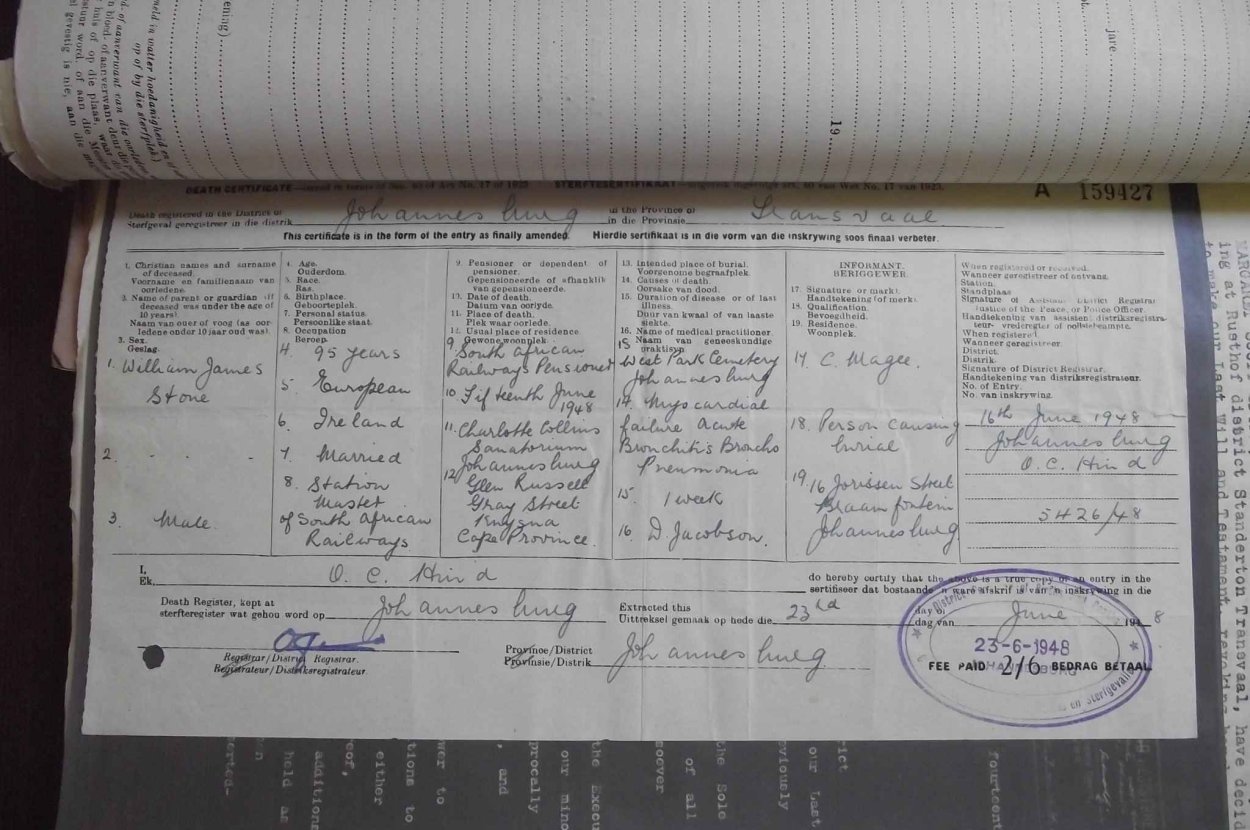 jare
19
DEATH CERTIFICATE
STERFTESERTIFIKAAT
A 159427
Death registered in the District of
Sterfgeval geregistreer in die distrik
Johannesburg
in the Province of
in die Provinsie
Transvaal
This certificate is in the form of the entry as finally amended. Hierdie sertifikaat is in die vorm van die inskrywing soos finaal verbeter.
1. Christian names and surname
of deceased.
Voorname en familienaam van
oorledene.
2. Name of parent or guardian (if
deceased was under the age of
10 years).
Naam van ouer of voog (as oor-
ledene onder 10 jaar oud was).
3. Sex.
Geslag.
1. William James
Stone
2. - - -
3. Male
4. Age.
Ouderdom.
5. Race.
Ras.
6. Birthplace.
Geboorteplek.
7. Personal status.
Persoonlike staat.
8. Occupation
Beroep.
4. 95 years
5. European
6. Ireland
7. Married
8. Station
Master
of South African
Railways
9. Pensioner or dependent of
pensioner.
Gepensioneerde of afhanklik
van gepensioneerde.
10. Date of death.
Datum van oorlyde.
11. Place of death.
Plek waar oorlede.
12. Usual place of residence
Gewone woonplek.
9. South African
Railways Pensioner
10. Fifteenth June
1948
11. Charlotte Collins
Sanatorium
Johannesburg
12. Glen Russell
Gray Street
Knysna
Cape Province.
13. Intended place of burial.
Voorgenome begraafplek.
14. Causes of death.
Oorsake van dood.
15. Duration of disease or of last
illness.
Duur van kwaal of van laaste
siekte.
16. Name of medical practitioner.
Naam van geneeskundige
praktisyn.
West Park Cemetery
Johannesburg
14. Myocardial
failure Acute
Bronchitis Broncho
Pneumonia
15. 1 week
16. D. Jacobson.
INFORMANT.
BERIGGEWER.
17. Signature or mark.
Handtekening of merk.
18. Qualification.
Bevoegdheid.
19. Residence.
Woonplek.
17 C. Magee.
18. Person causing
burial
19. 16 Jorissen Street
Braamfontein
Johannesburg
When registered or received.
Wanneer geregistreer of ontvang.
Station.
Standplaas
Signature of Assistant District Registrar
Justice of the Peace, or Police Officer.
Handtekening van assistent distriksregistra-
teur- vrederegter of polisiebeampte.
When registered
Wanneer geregistreer
District.
Distrik.
Signature of District Registrar.
Handtekening van distriksregistrateur.
No. of Entry.
No. van inskrywing.
16th June 1948
Johannesburg
O. C. Hind
5426/48
I,
Ek,
O. C. Hind
do hereby certify that the above is a true copy of an entry in the
sertifiseer dat bostaande 'n ware afskrif is van 'n inskrywing in die
Death Register, kept at
sterfteregister wat gehou word op
Johannesburg
Extracted this
Uittreksel gemaak op hede die
23rd
day of
dag van
June
194 8
Registrar/District Registrar.
Registrateur/Distriksregistrateur
Province/District
Provinsie/Distrik
Johannesburg
23-6-1948
FEE PAID 2/6 BEDRAG BETAAL
ing at Rusthof district Standerton Transvaal, have decid
to make our Last Will and Testament, revoking
fourteent
our Last
viously
the Sole
of all
soever
the Execu
our mino
pocally
, and
wer to
tions to
either
additions
held as